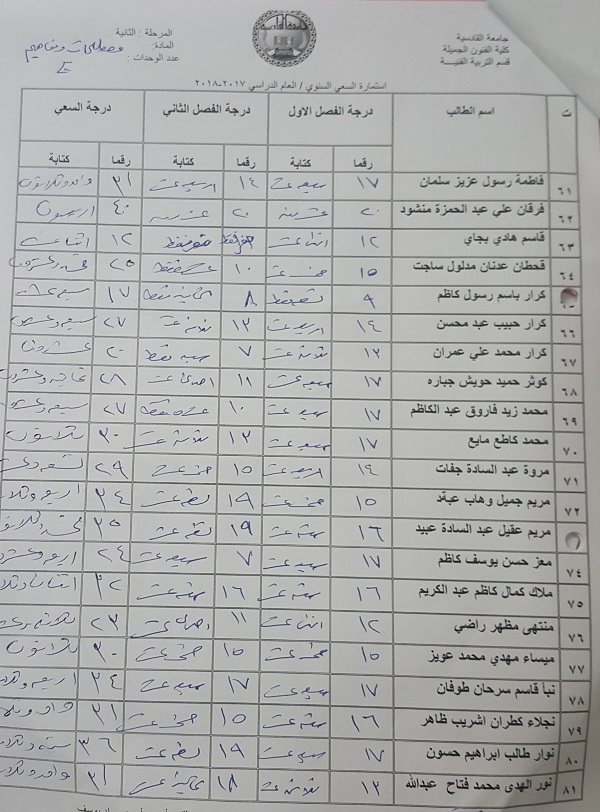 جامعة القادسية
كلية الفنون الجميلة
قسم التربية الفنية
المرحلة : الثانية
المادة: مصطلحات ومفاهيم
عدد الوحدات:
استمارة السعي السنوي / العام الدراسي ٢٠١٧-٢٠١٨
ت اسم الطالب درجة الفصل الاول درجة الفصل الثاني درجة السعي
رقما كتابة رقما كتابة رقما كتابة
٦١ فاطمة رسول عزيز سلمان ١٧ سبعة عشر ١٤ اربعة عشر ٣١ واحد وثلاثون
٦٢ فرقان علي عبد الحمزة منشود ٢٠ عشرون ٢٠ عشرون ٤٠ اربعون
٦٣ قاسم هادي بجاي ١٢ اثنا عشر صفر فقط صفر فقط ١٢ اثنا عشر
٦٤ قحطان عدنان مدلول ساجت ١٥ خمسة عشر ١٠ عشرة فقط ٢٥ خمسة وعشرون
كرار باسم رسول كاظم ٩ تسعة فقط ٨ ثمانية فقط ١٧ سبعة عشر
٦٦ كرار حبيب عبد محسن ١٤ اربعة عشر ١٣ ثلاثة عشر ٢٧ سبعة وعشرون
٦٧ كرار محمد علي عمران ١٣ ثلاثة عشر ٧ سبعة فقط ٢٠ عشرون
٦٨ كوثر حميد حويش جباره ١٧ سبعة عشر ١١ احدى عشر ٢٨ ثمانية وعشرون
٦٩ محمد زيد فاروق عبد الكاظم ١٧ سبعة عشر ١٠ عشرة فقط ٢٧ سبعة وعشرون
٧٠ محمد كاطع مايع ١٧ سبعة عشر ١٣ ثلاثة عشر ٣٠ ثلاثون
٧١ مروة عبد السادة جفات ١٤ اربعة عشر ١٥ خمسة عشر ٢٩
٧٢ مريم جميل وهاب عبد ١٥ خمسة عشر ١٩ تسعة عشر ٣٤
مريم عقيل عبد السادة عبيد ١٦ ستة عشر ١٩ تسعة عشر ٣٥
٧٤ معز حسن يوسف كاظم ١٧ سبعة عشر ٧ ٢٤
٧٥ ملاك كمال كاظم عبد الكريم ١٦ ستة عشر ١٦ ستة عشر ٣٢
٧٦ منتهى مظهر راضي ١٢ اثنا عشر ١١ احدى عشر ٢٣
٧٧ ميساء مهدي محمد عويز ١٥ خمسة عشر ١٥ خمسة عشر ٣٠ ثلاثون
٧٨ نبأ قاسم سرحان طوفان ١٧ سبعة عشر ١٧ سبعة عشر ٣٤
٧٩ نجلاء كطران اشريب ظاهر ١٦ ستة عشر ١٥ خمسة عشر ٣١
٨٠ نوار طالب ابراهيم حسون ١٧ سبعة عشر ١٩ تسعة عشر ٣٦
٨١ نور الهدى محمد فتاح عبدالله ١٣ ثلاثة عشر ١٨ ثمانية عشر ٣١